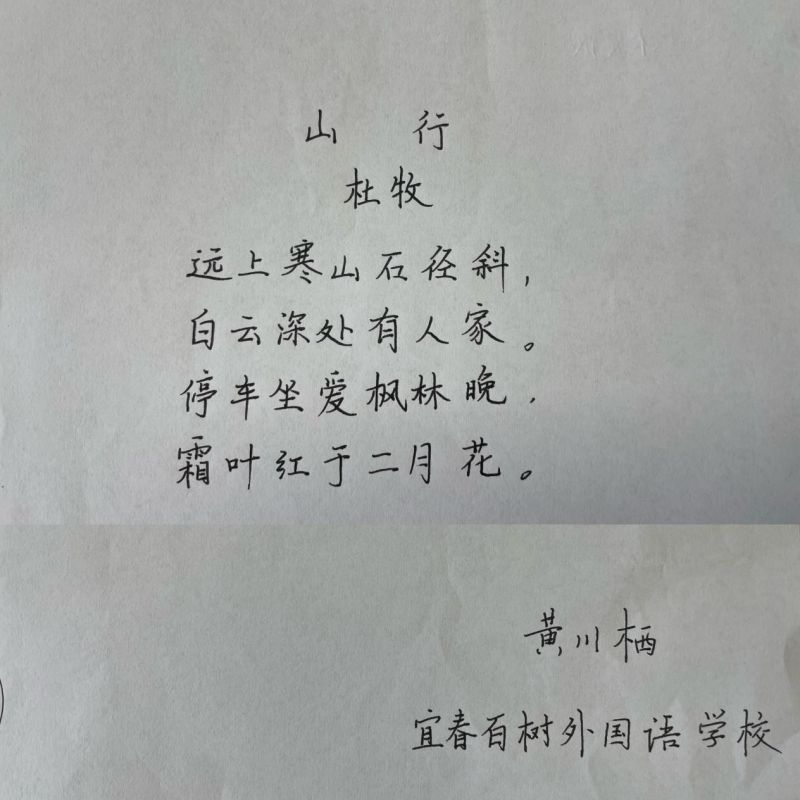 山 行
杜牧
远上寒山石径斜，
白云深处有人家。
停车坐爱枫林晚，
霜叶红于二月花。
黄川栖
宜春百树外国语学校